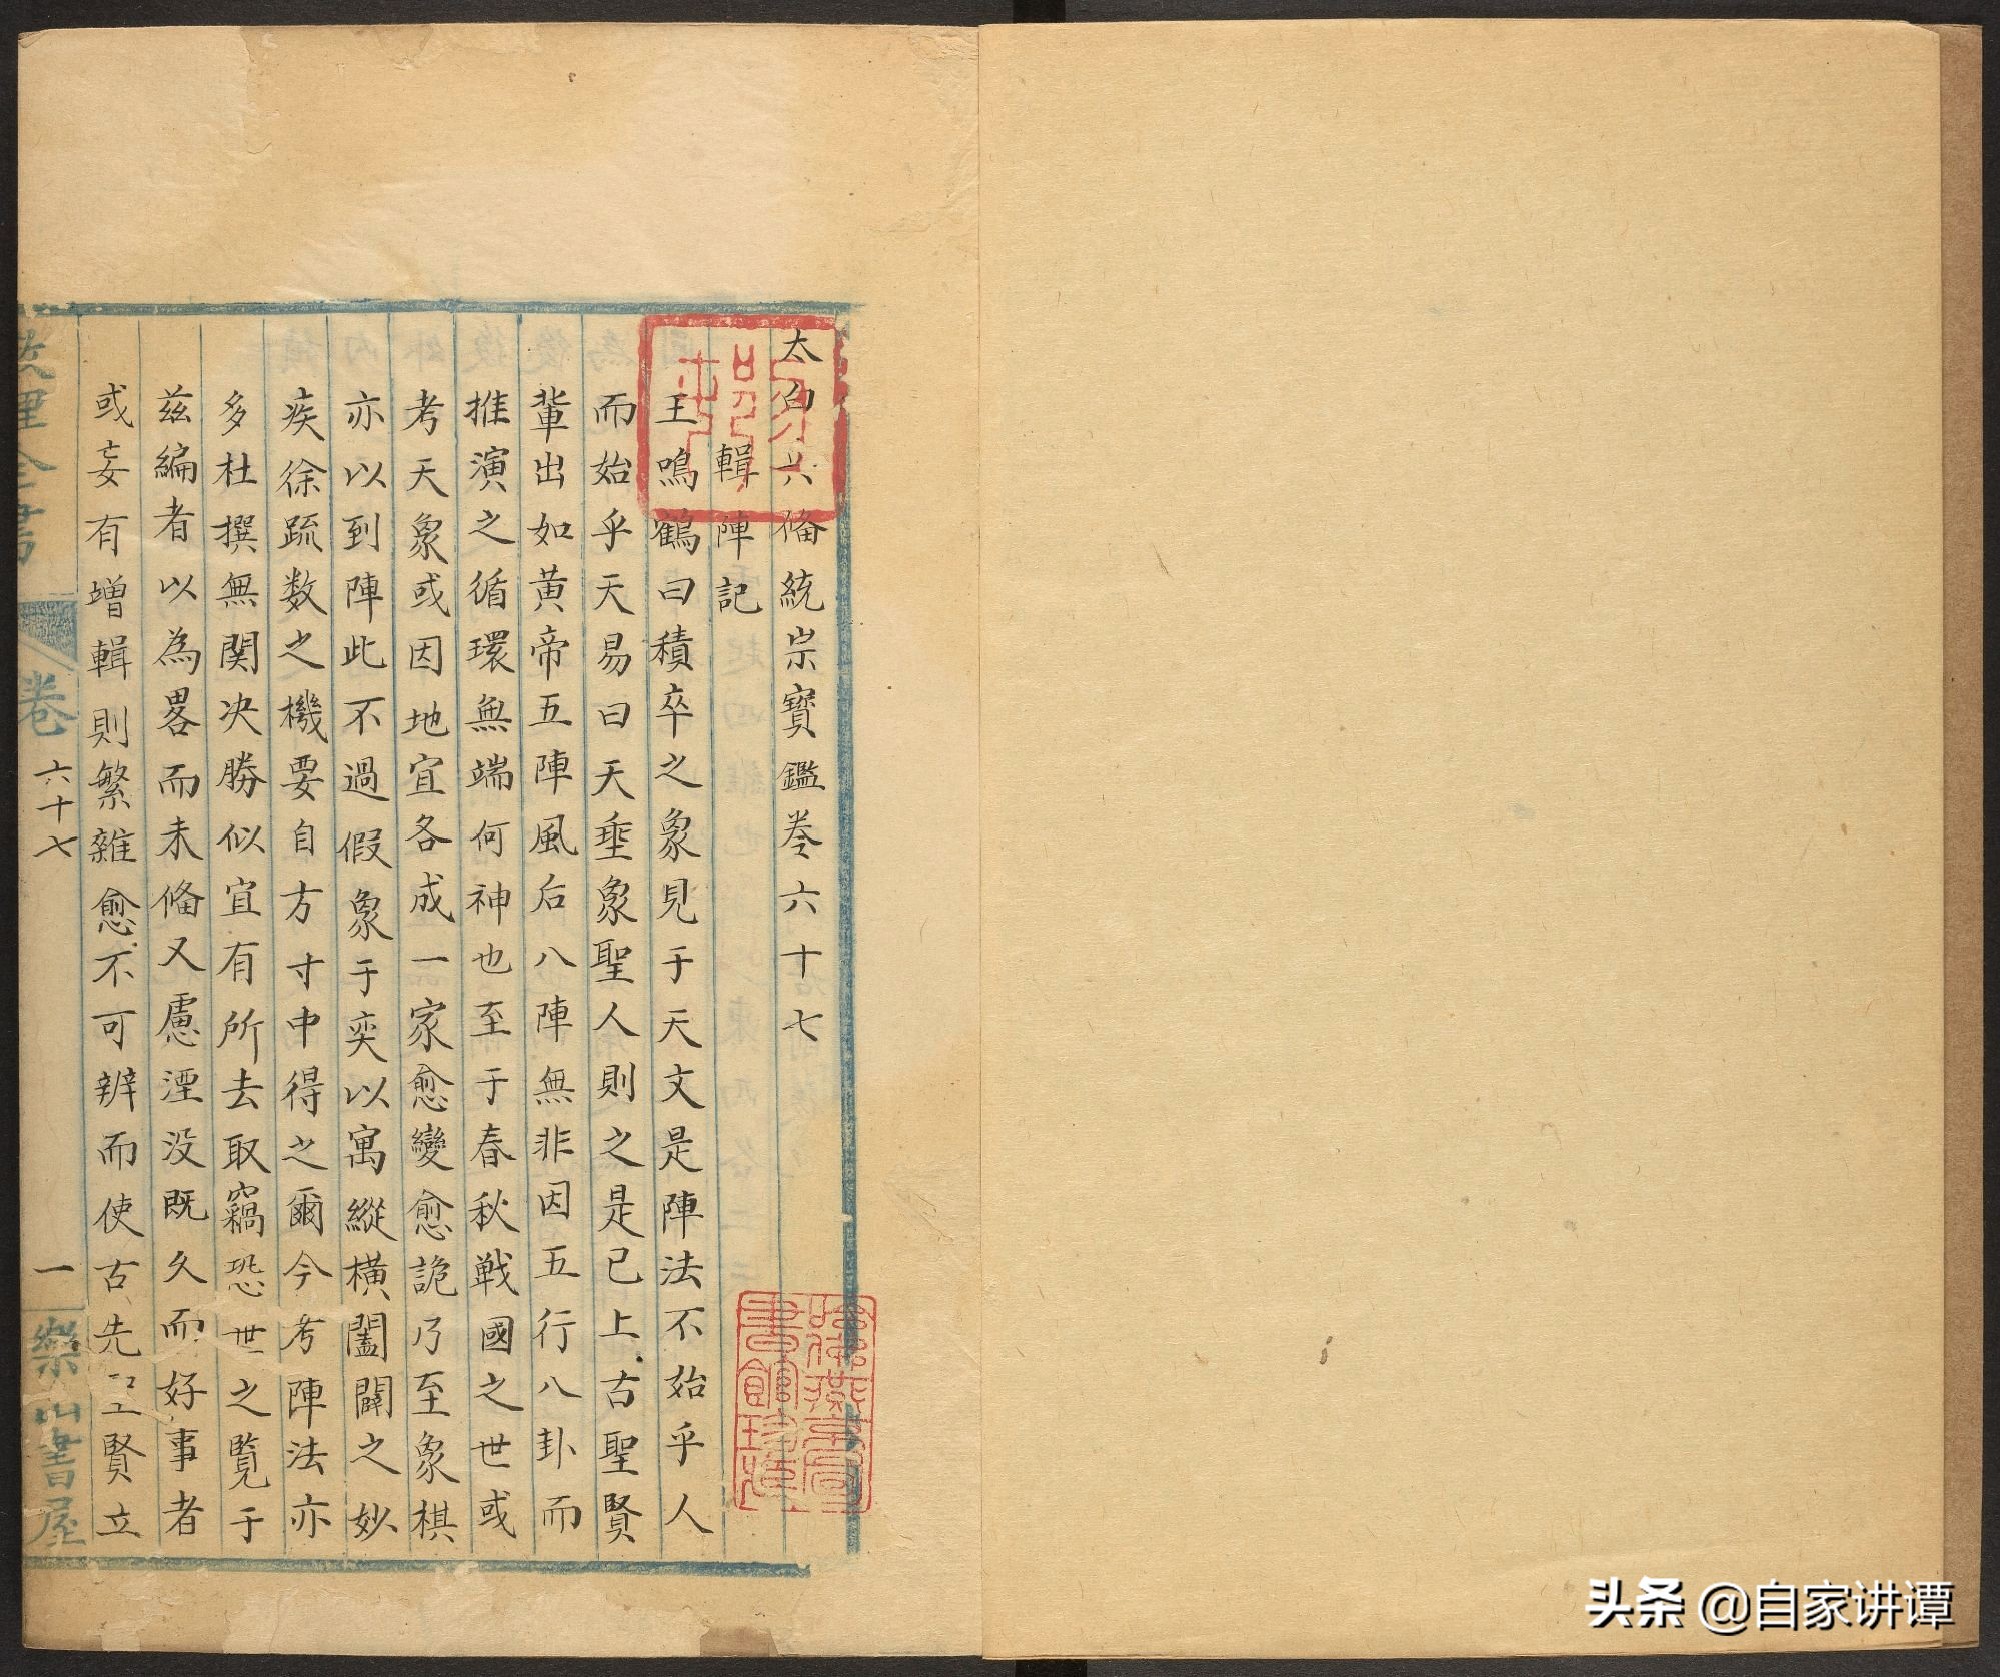 太白六俻統宗寳鑑卷六十七
輯陣記
王鳴鶴曰積卒之象見于天文是陣法不始乎人
而始乎天易曰天垂象聖人則之是已上古聖賢
輩出如黄帝五陣風后八陣無非因五行八卦而
推演之循環無端何神也至于春秋戰國之世或
考天象或因地宜各成一家愈變愈詭乃至象棋
亦以到陣此不過假象于奕以寓縱橫闔闢之妙
疾徐疏数之機要自方寸中得之爾今考陣法亦
多杜撰無関决勝似宜有所去取竊恐世之覽于
兹編者以為畧而未俻又慮湮没既久而好事者
或妄有增輯則繁雜愈不可辨而使古先聖賢立
卷
六十七
一
樂山書屋
哈佛燕京圖書館珍藏
头条 @自家讲谭